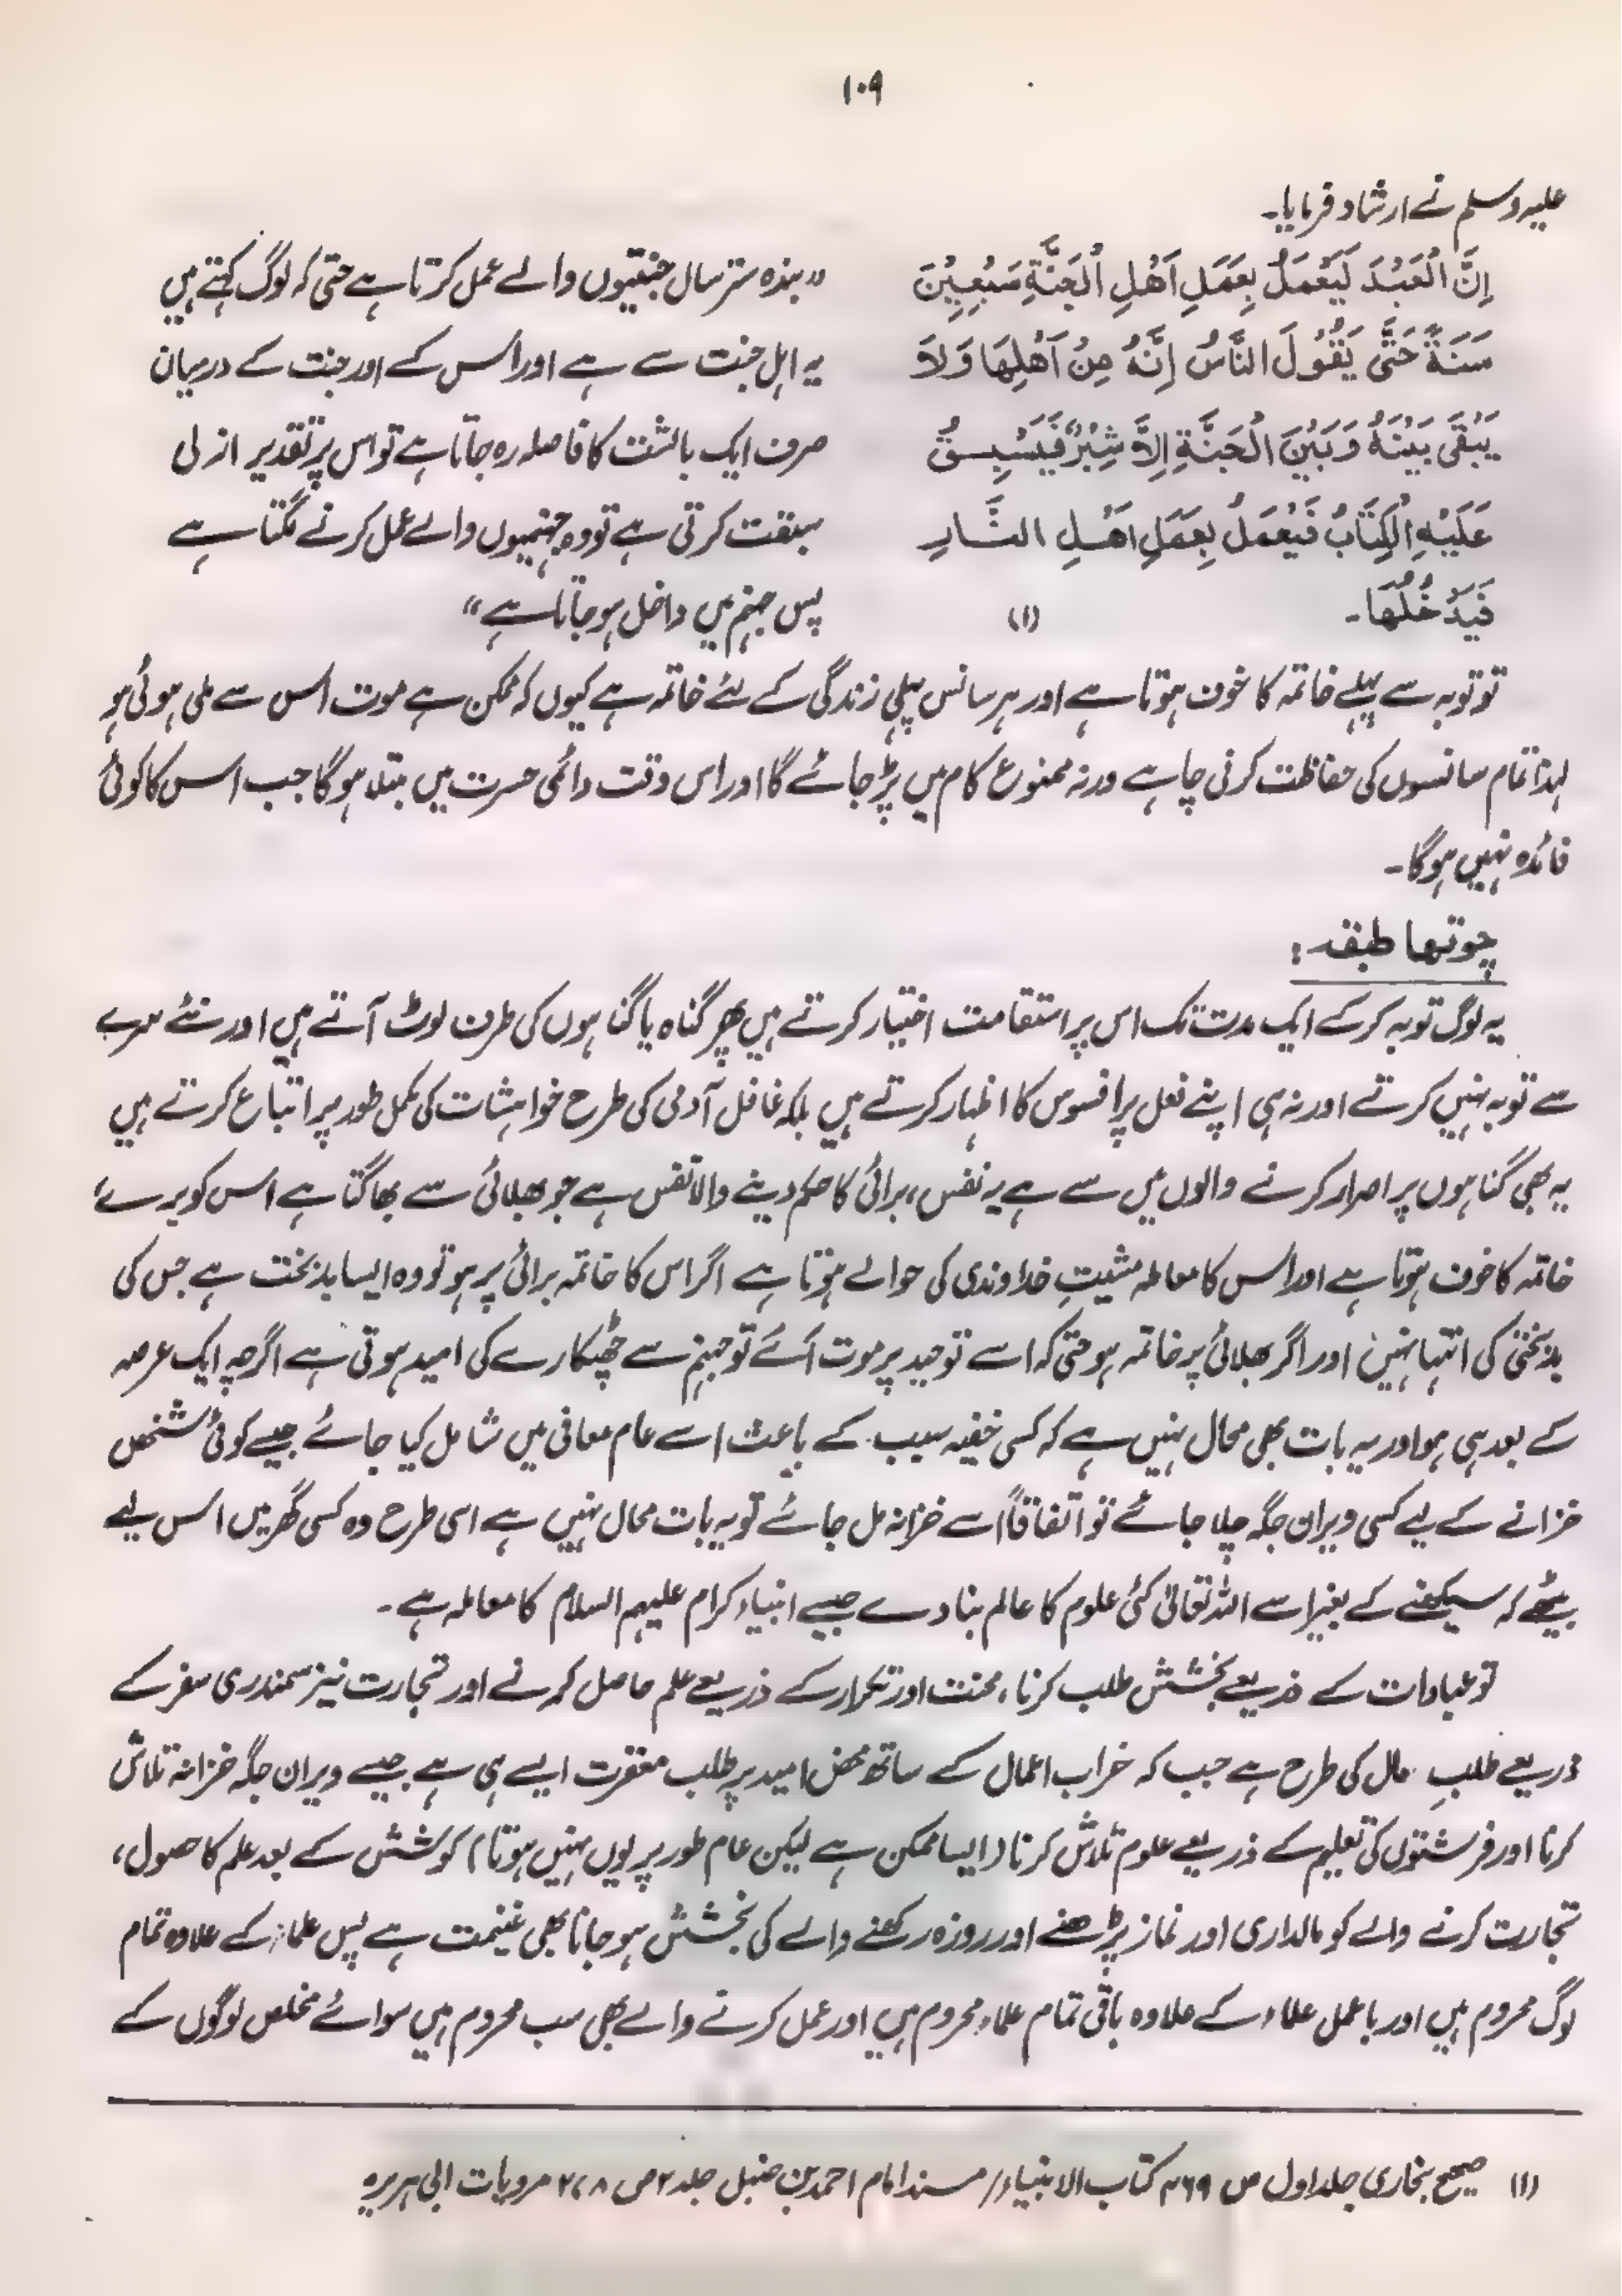 ۱۰۹
علیہ وسلم نے ارشاد فرمایا۔
اِنَّ الْعَبْدَ لَیَعْمَلُ بِعَمَلِ اَهْلِ الْجَنَّةِ سَبْعِیْنَ
سَنَةً حَتّٰی یَقُوْلَ النَّاسُ اِنَّهُ مِنْ اَهْلِهَا وَلَا
یَبْقٰی بَیْنَهُ وَبَیْنَ الْجَنَّةِ اِلَّا شِبْرٌ فَیَسْبِقُ
عَلَیْهِ الْکِتَابُ فَیَعْمَلُ بِعَمَلِ اَهْلِ النَّارِ
فَیَدْخُلُهَا۔ (۱)
"بندہ ستر سال جنتیوں والے عمل کرتا ہے حتی کہ لوگ کہتے ہیں
یہ اہل جنت سے ہے اور اس کے اور جنت کے درمیان
صرف ایک بالشت کا فاصلہ رہ جاتا ہے تو اس پر تقدیر ازلی
سبقت کرتی ہے تو وہ جہنمیوں والے عمل کرنے لگتا ہے
پس جہنم میں داخل ہو جاتا ہے"
تو توبہ سے پہلے خاتمہ کا خوف ہوتا ہے اور ہر سانس پہلی زندگی کے لئے خاتمہ ہے کیوں کہ ممکن ہے موت اس سے ملی ہوئی ہو
لہذا تمام سانسوں کی حفاظت کرنی چاہے ورنہ ممنوع کام میں پڑ جائے گا اور اس وقت دائمی حسرت میں مبتلا ہوگا جب اس کا کوئی
فائدہ نہیں ہوگا۔
چوتھا طبقہ:
یہ لوگ توبہ کرکے ایک مدت تک اس پر استقامت اختیار کرتے ہیں پھر گناہ یا گناہوں کی طرف لوٹ آتے ہیں اور نئے سرے
سے توبہ نہیں کرتے اور نہ ہی اپنے فعل پر افسوس کا اظہار کرتے ہیں بلکہ غافل آدمی کی طرح خواہشات کی مکمل طور پر اتباع کرتے ہیں
یہ بھی گناہوں پر اصرار کرنے والوں میں سے ہے یہ نفس، برائی کا حکم دینے والا نفس ہے جو بھلائی سے بھاگتا ہے اس کو برے
خاتمہ کا خوف ہوتا ہے اور اس کا معاملہ مشیتِ خداوندی کی حوالے ہوتا ہے اگر اس کا خاتمہ برائی پر ہو تو وہ ایسا بدبخت ہے جس کی
بدبختی کی انتہا نہیں اور اگر بھلائی پر خاتمہ ہو حتی کہ اسے توحید پر موت آئے تو جہنم سے چھٹکارے کی امید ہوتی ہے اگرچہ ایک عرصہ
کے بعد ہی ہو اور یہ بات بھی محال نہیں ہے کہ کسی خفیہ سبب کے باعث اسے عام معافی میں شامل کیا جائے جیسے کوئی شخص
خزانے کے لیے کسی ویران جگہ چلا جائے تو اتفاقاً اسے خزانہ مل جائے تو یہ بات محال نہیں ہے اسی طرح وہ کسی گھر میں اس لیے
بیٹھے کہ سیکھنے کے بغیر اسے اللہ تعالیٰ کئی علوم کا عالم بنا دے جیسے انبیاء کرام علیہم السلام کا معاملہ ہے۔
تو عبادات کے ذریعے بخشش طلب کرنا، محنت اور تکرار کے ذریعے علم حاصل کرنے اور تجارت نیز سمندری سفر کے
ذریعے طلبِ مال کی طرح ہے جب کہ خراب اعمال کے ساتھ محض امید پر طلب مغفرت ایسے ہی ہے جیسے ویران جگہ خزانہ تلاش
کرنا اور فرشتوں کی تعلیم کے ذریعے علوم تلاش کرنا (ایسا ممکن ہے لیکن عام طور پر یوں نہیں ہوتا) کوشش کے بعد علم کا حصول،
تجارت کرنے والے کو مالداری اور نماز پڑھنے اور روزہ رکھنے والے کی بخشش ہو جانا بھی غنیمت ہے پس علماء کے علاوہ تمام
لوگ محروم ہیں اور باعمل علماء کے علاوہ باقی تمام علماء محروم ہیں اور عمل کرنے والے بھی سب محروم ہیں سوائے مخلص لوگوں کے
(۱) صحیح بخاری جلد اول ص ۴۶۹ کتاب الانبیاء/ مسند امام احمد بن حنبل جلد ۲ ص ۲۷۸ مرویات ابی ہریرہ